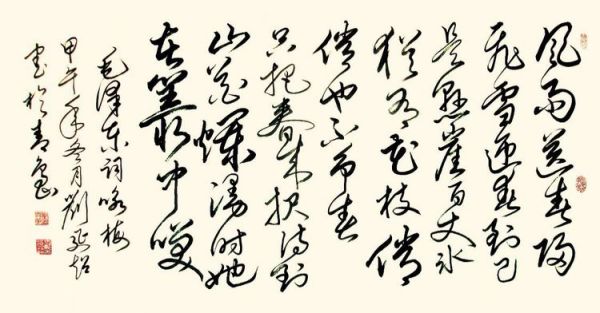 风雨送春归
飞雪迎春到已
是悬崖百丈冰
犹有花枝俏
俏也不争春
只把春来报待到
山花烂漫时她
在丛中笑
毛泽东词咏梅
甲午年冬月刘延
书於青岛